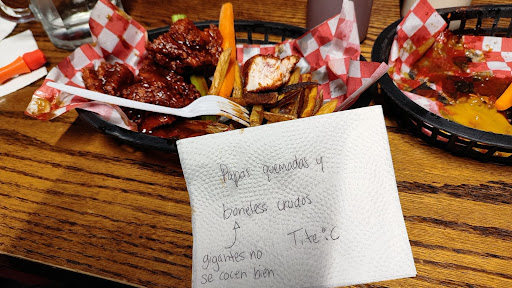 Papas quemadas y
boneless crudos
Tite :C
gigantes no
se cocen bien